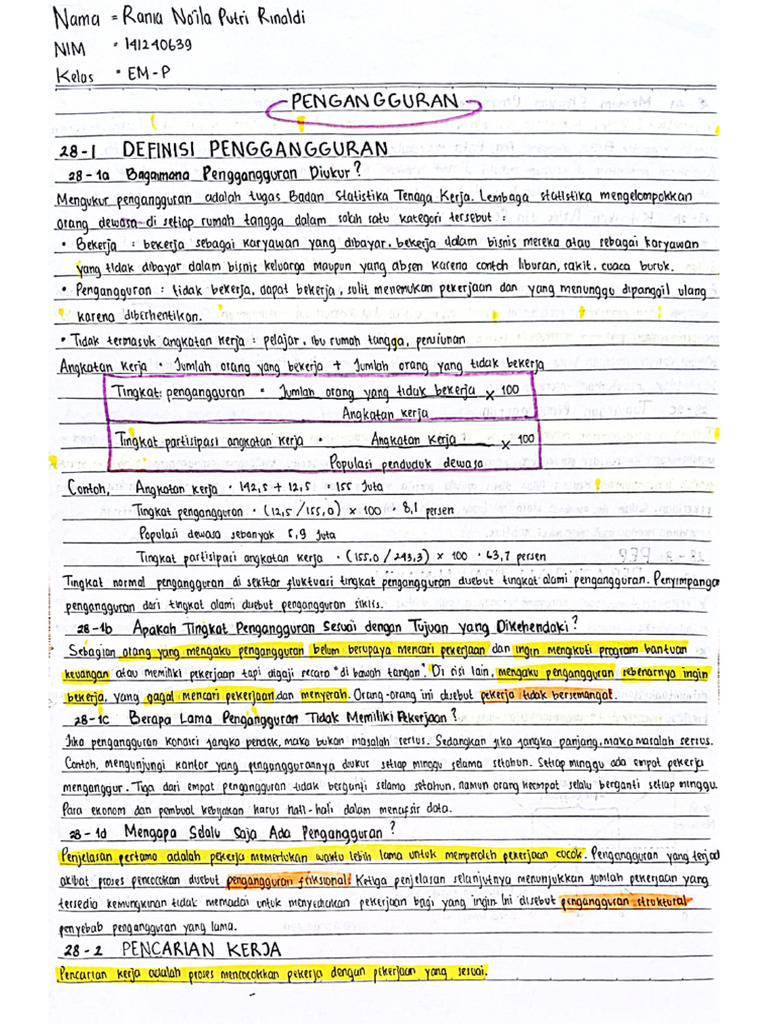 Nama = Rania No'ila Putri Rinaldi
NIM = 141240639
Kelas = EM-P
PENGANGGURAN
28-1 DEFINISI PENGGANGGURAN
28-1a Bagaimana Penggangguran Diukur?
Mengukur pengangguran adalah tugas Badan Statistika Tenaga Kerja. Lembaga statistika mengelompokkan
orang dewasa di setiap rumah tangga dalam salah satu kategori tersebut :
• Bekerja : bekerja sebagai karyawan yang dibayar, bekerja dalam bisnis mereka atau sebagai karyawan
yang tidak dibayar dalam bisnis keluarga maupun yang absen karena contoh liburan, sakit, cuaca buruk.
• Pengangguran : tidak bekerja, dapat bekerja, sulit menemukan pekerjaan dan yang menunggu dipanggil ulang
karena diberhentikan.
• Tidak termasuk angkatan kerja : pelajar, ibu rumah tangga, pensiunan
Angkatan Kerja = Jumlah orang yang bekerja + Jumlah orang yang tidak bekerja
Tingkat pengangguran = Jumlah orang yang tidak bekerja x 100
Angkatan kerja
Tingkat partisipasi angkatan kerja = Angkatan Kerja x 100
Populasi penduduk dewasa
Contoh, Angkatan kerja = 142,5 + 12,5 = 155 Juta
Tingkat pengangguran = (12,5 / 155,0) x 100 = 8,1 persen
Populasi dewasa sebanyak 5,9 Juta
Tingkat partisipasi angkatan kerja = (155.0 / 243,3) x 100 = 63,7 persen
Tingkat normal pengangguran di sekitar fluktuasi tingkat pengangguran disebut tingkat alami pengangguran. Penyimpangan
pengangguran dari tingkat alami disebut pengangguran siklis.
28-1b Apakah Tingkat Pengangguran Sesuai dengan Tujuan yang Dikehendaki?
Sebagian orang yang mengaku pengangguran belum berupaya mencari pekerjaan dan ingin mengikuti program bantuan
keuangan atau memiliki pekerjaan tapi digaji secara "di bawah tangan". Di sisi lain, mengaku pengangguran sebenarnya ingin
bekerja, yang gagal mencari pekerjaan dan menyerah. Orang-orang ini disebut pekerja tidak bersemangat.
28-1c Berapa Lama Pengangguran Tidak Memiliki Pekerjaan?
Jika pengangguran kondisi jangka pendek, maka bukan masalah serius. Sedangkan jika jangka panjang, maka masalah serius.
Contoh, mengunjungi kantor yang penggangurannya diukur setiap minggu selama setahun. Setiap minggu ada empat pekerja
menganggur. Tiga dari empat pengangguran tidak berganti selama setahun, namun orang keempat selalu berganti setiap minggu.
Para ekonom dan pembuat kebijakan harus hati-hati dalam menafsir data.
28-1d Mengapa Selalu Saja Ada Pengangguran?
Penjelasan pertama adalah pekerja memerlukan waktu lebih lama untuk memperoleh pekerjaan cocok. Pengangguran yang terjadi
akibat proses pencocokan disebut pengangguran friksional. Ketiga penjelasan selanjutnya menunjukkan jumlah pekerjaan yang
tersedia kemungkinan tidak memadai untuk menyediakan pekerjaan bagi yang ingin. Ini disebut pengangguran struktural
penyebab pengangguran yang lama.
28-2 PENCARIAN KERJA
Pencarian kerja adalah proses mencocokkan pekerja dengan pekerjaan yang sesuai.